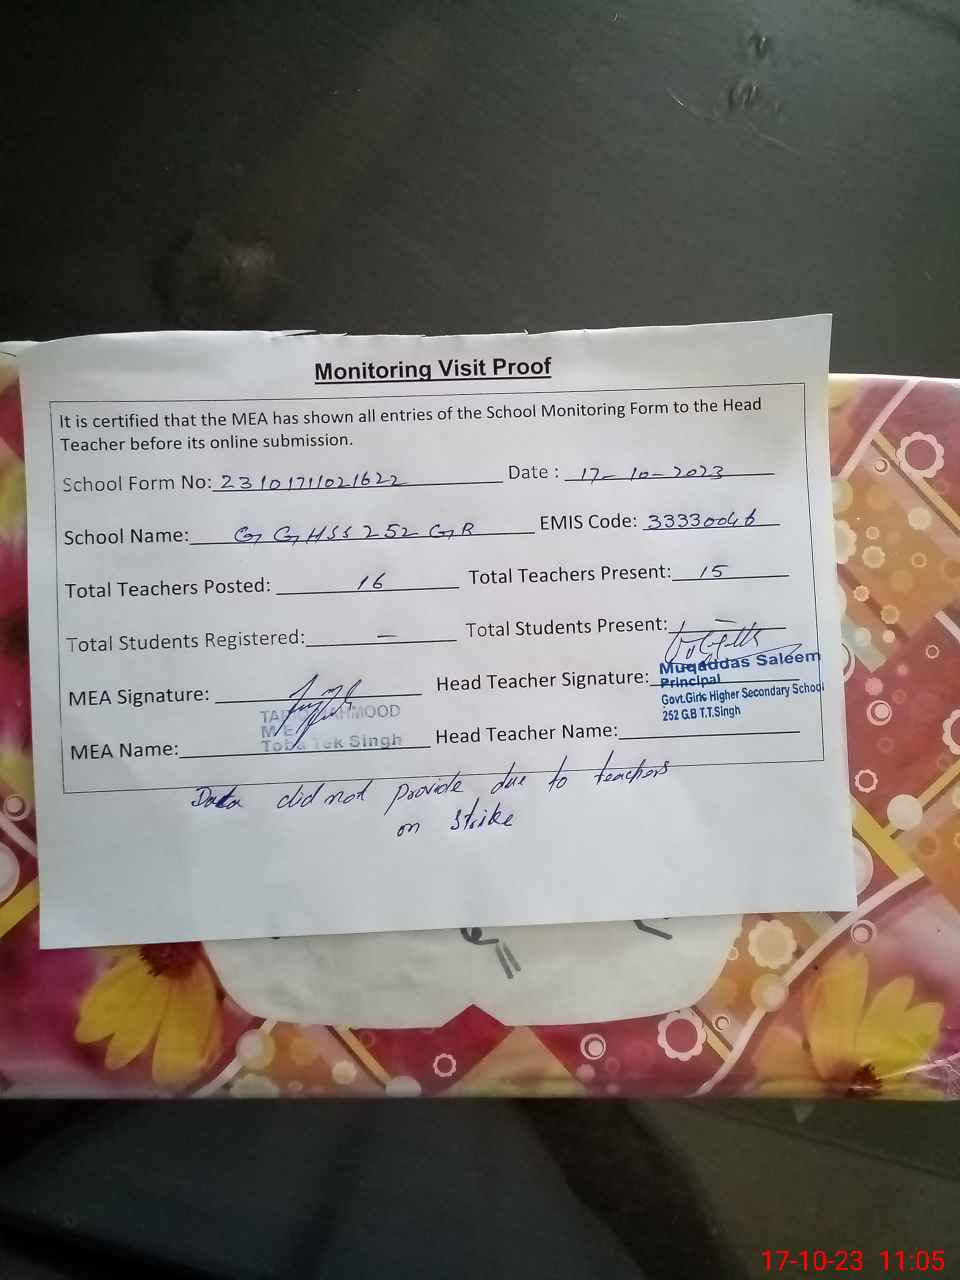 Monitoring Visit Proof
It is certified that the MEA has shown all entries of the School Monitoring Form to the Head
Teacher before its online submission.
School Form No: 23101711021622 Date : 17-10-2023
School Name: GGHSS 252 GB EMIS Code: 33330046
Total Teachers Posted: 16 Total Teachers Present: 15
Total Students Registered: — Total Students Present: —
MEA Signature: Head Teacher Signature:
Muqaddas Saleem
Principal
Govt.Girls Higher Secondary School
252 G.B T.T.Singh
MAHMOOD
MEA
Toba Tek Singh
MEA Name: Head Teacher Name:
Data did not provide due to teachers
on strike
17-10-23 11:05